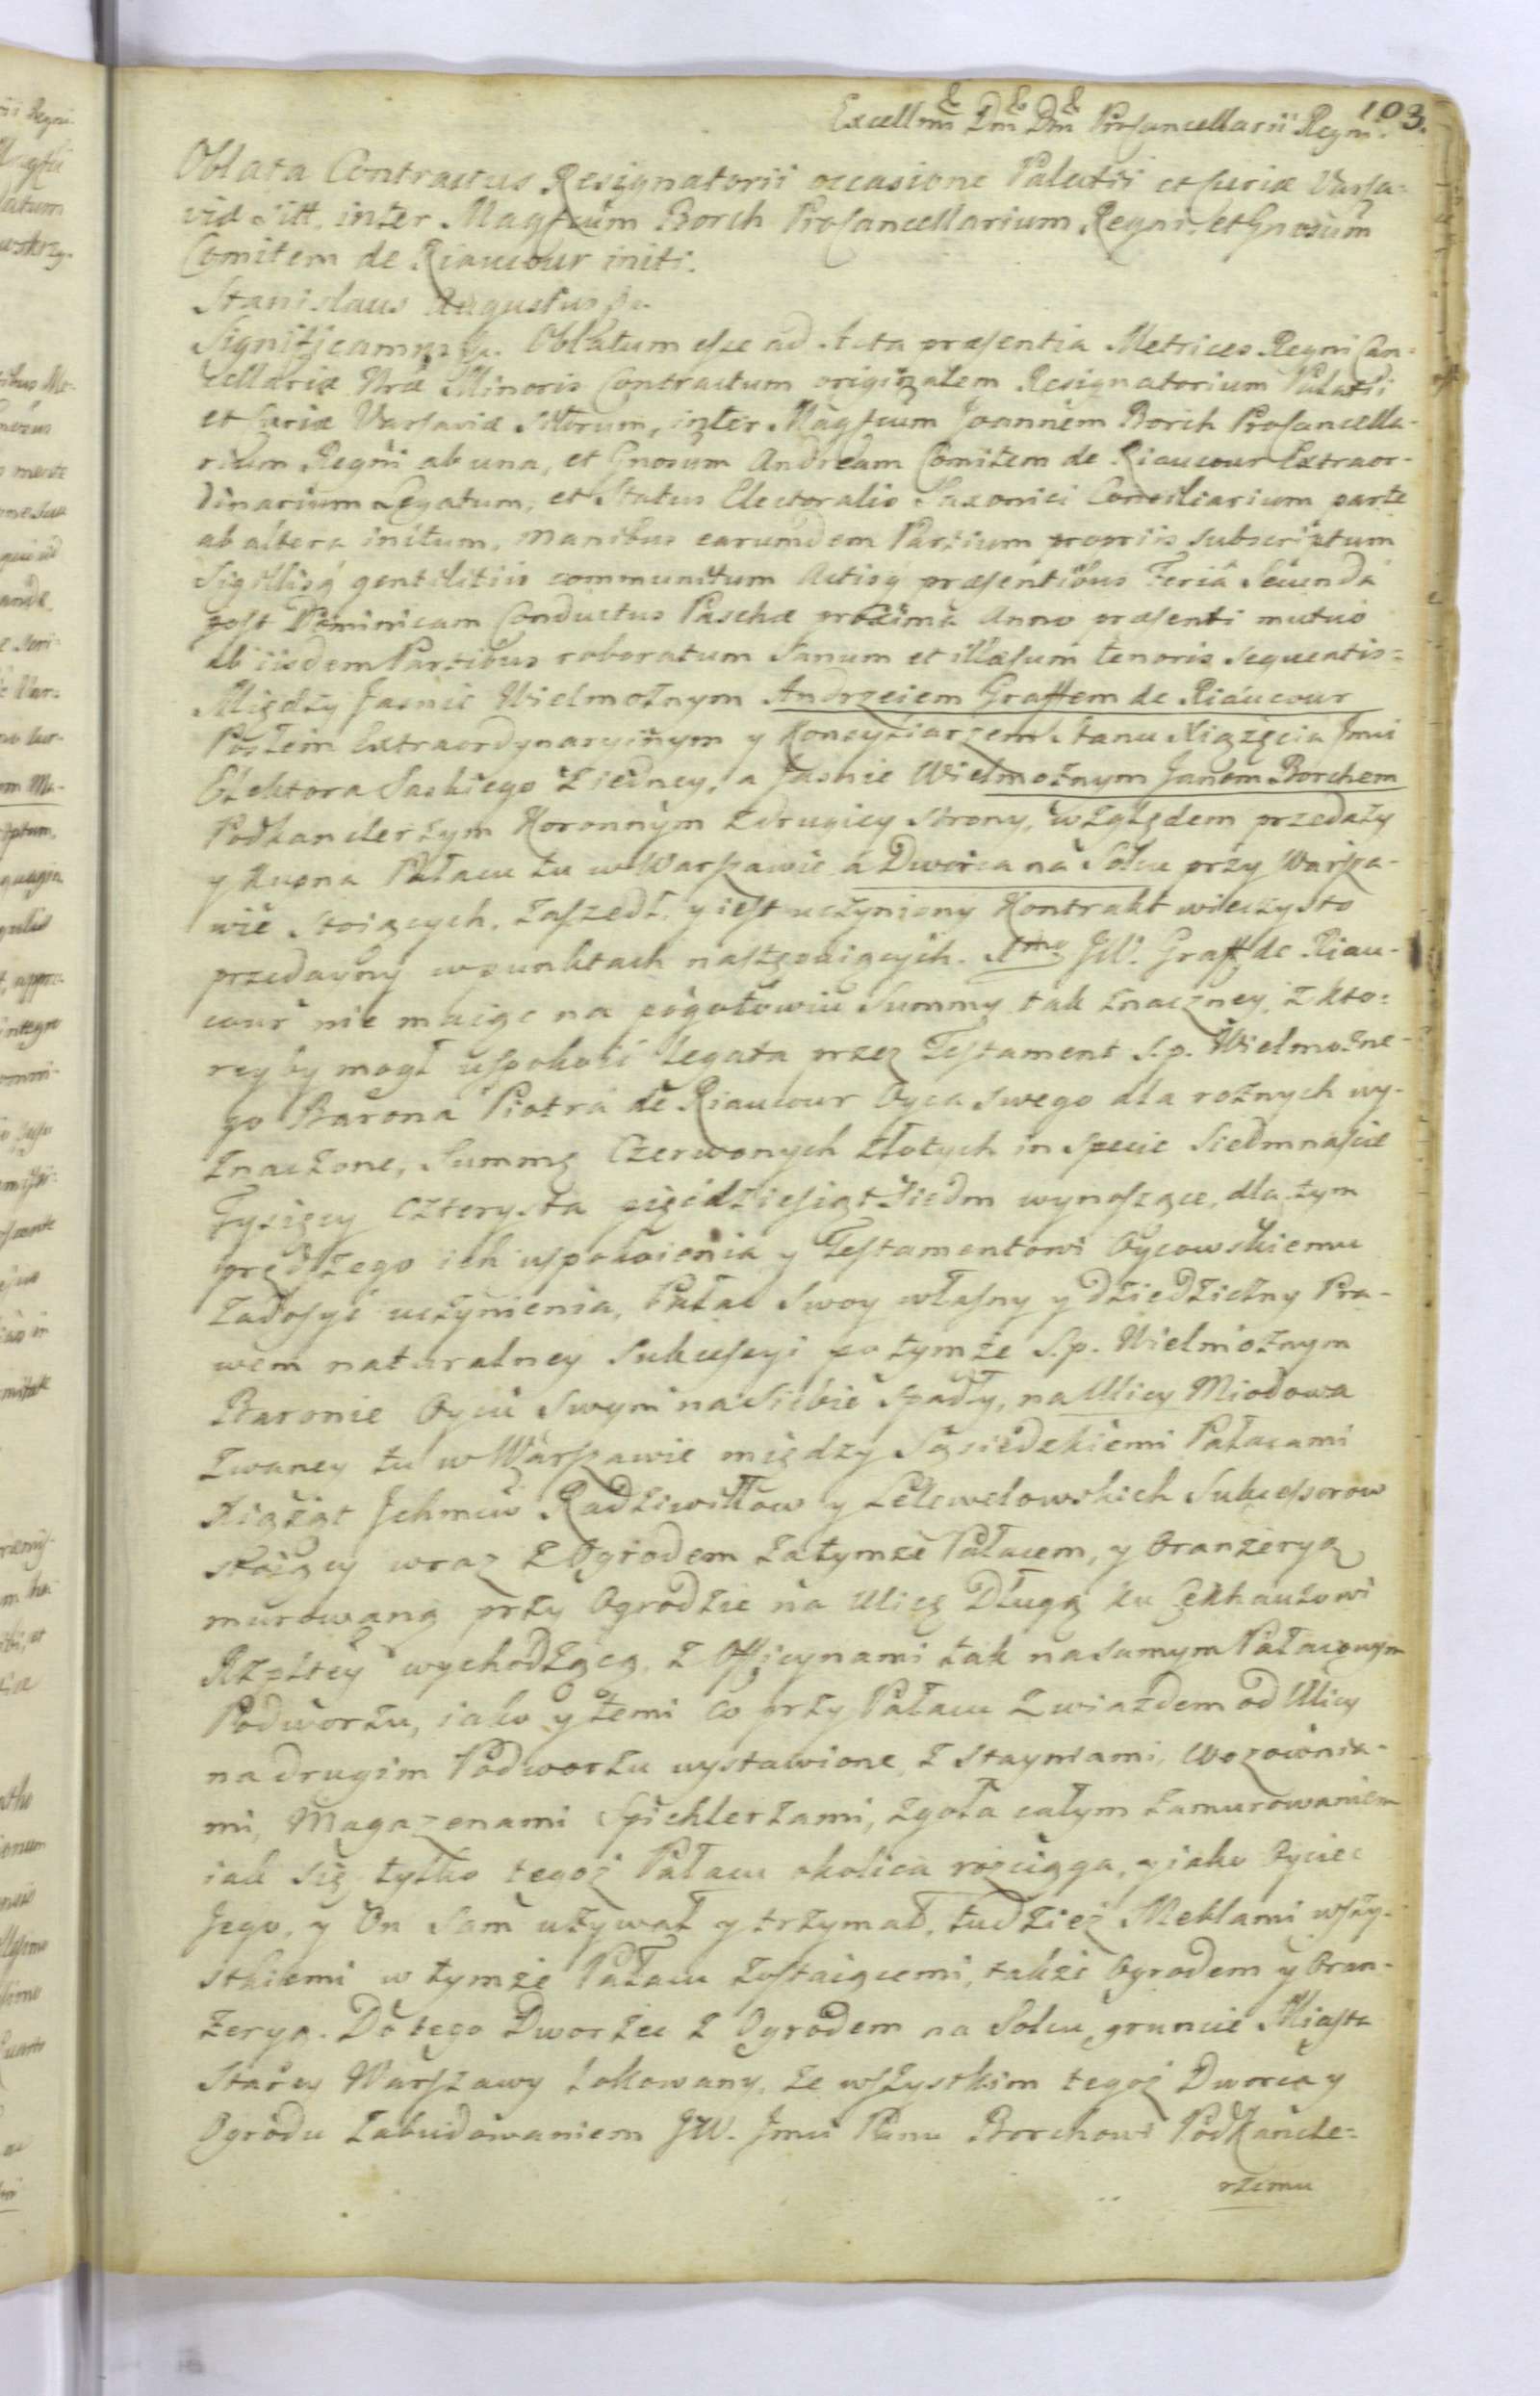 103.
Excellmi Dni Dni Procancellarii Regni.
Oblata Contractus Resignatorii occasione Palatii et Curiæ Varsa=
viæ sitt. inter Magfcum Borch Procancellarium Regni, et Gnosum
Comitem de Riaucour initi.
Stanislaus Augustus &c.
Significamus &c. Oblatum esse ad Acta præsentia Metrices Regni Can=
cellariæ Nræ Minoris Contractum originalem Resignatorium Palatii
et Curiæ Varsaviæ sitorum, inter Magfcum Joannem Borch Procancella-
rium Regni ab una, et Gnosum Andream Comitem de Riaucour Extraor-
dinarium Legatum, et Status Electoralis Saxonici Consiliarium parte
ab altera initum, manibus earumdem Partium propriis subscriptum
Sigillisq gentilitiis communitum Actisq præsentibus Feriâ Secundâ
post Dominicam Conductus Paschæ proximâ Anno præsenti mutuo
ab iisdem Partibus roboratum sanum et illæsum tenoris sequentis=
Między Jasnie Wielmożnym Andrzeiem Graffem de Riaucour
Posłem Extraordynaryinym y Konsyliarzem Stanu Xiążęcia Jmci
Elektora Saskiego z iedney, a Jasnie Wielmożnym Janem Borchem
Podkanclerzym Koronnym z drugiey strony, względem przedaży
y kupna Pałacu tu w Warszawie a Dworca na Solcu przy Warsza-
wie stoiących, zaszedł, y iest uczyniony Kontrakt wieczysto
przedayny w punktach następuiących. 1mo JW. Graff de Riau-
cour nie maiąc na pogotowiu Summy tak znaczney, z kto=
rey by mogł uspokoić legata przez Testament s.p. Wielmożne-
go Barona Piotra de Riaucour Oyca swego dla rożnych wy-
znaczone, Summę Czerwonych złotych in specie siedmnaście
Tysięcy czterysta pięćdziesiąt siedm wynoszące, dla tym
prędszego ich uspokoienia y Testamentowi Oycowskiemu
zadosyć uczynienia, Pałac swoy własny y dziedziczny Pra-
wem naturalney Sukcessyi po tymże s.p. Wielmożnym
Baronie Oycu swym na siebie spadły, na Ulicy Miodowa
zwaney tu w Warszawie między Sąsiedzkiemi Pałacami
Xiążąt Jchmciow Radziwiłłow y Lelewelowskich Sukcessorow
stoiący wraz z Ogrodem za tymże Pałacem, y Oranżeryą
murowaną przy Ogrodzie na Ulicę Długą ku Cekhauzowi
Rzpltey wychodzącą, z Officynami tak na samym Pałacowym
Podworzu, iako y temi co przy Pałacu z wiazdem od Ulicy
na drugim Podworzu wystawione, z stayniami, Wozownia-
mi, Magazenami Spichlerzami, zgoła całym zamurowaniem
iak się tylko tegoż Pałacu okolica rozciąga, y iako Oyciec
Jego, y On sam używał y trzymał, tudzież Meblami wszy-
stkiemi w tymże Pałacu zostaiącemi, także Ogrodem y Oran-
żeryą. Do tego Dworzec z Ogrodem na Solcu, gruncie Miasta
Starey Warszawy lokowany, ze wszystkim tegoż Dworca y
Ogrodu zabudowaniem JW. Jmci Panu Borchowi Podkancle=
rzemu